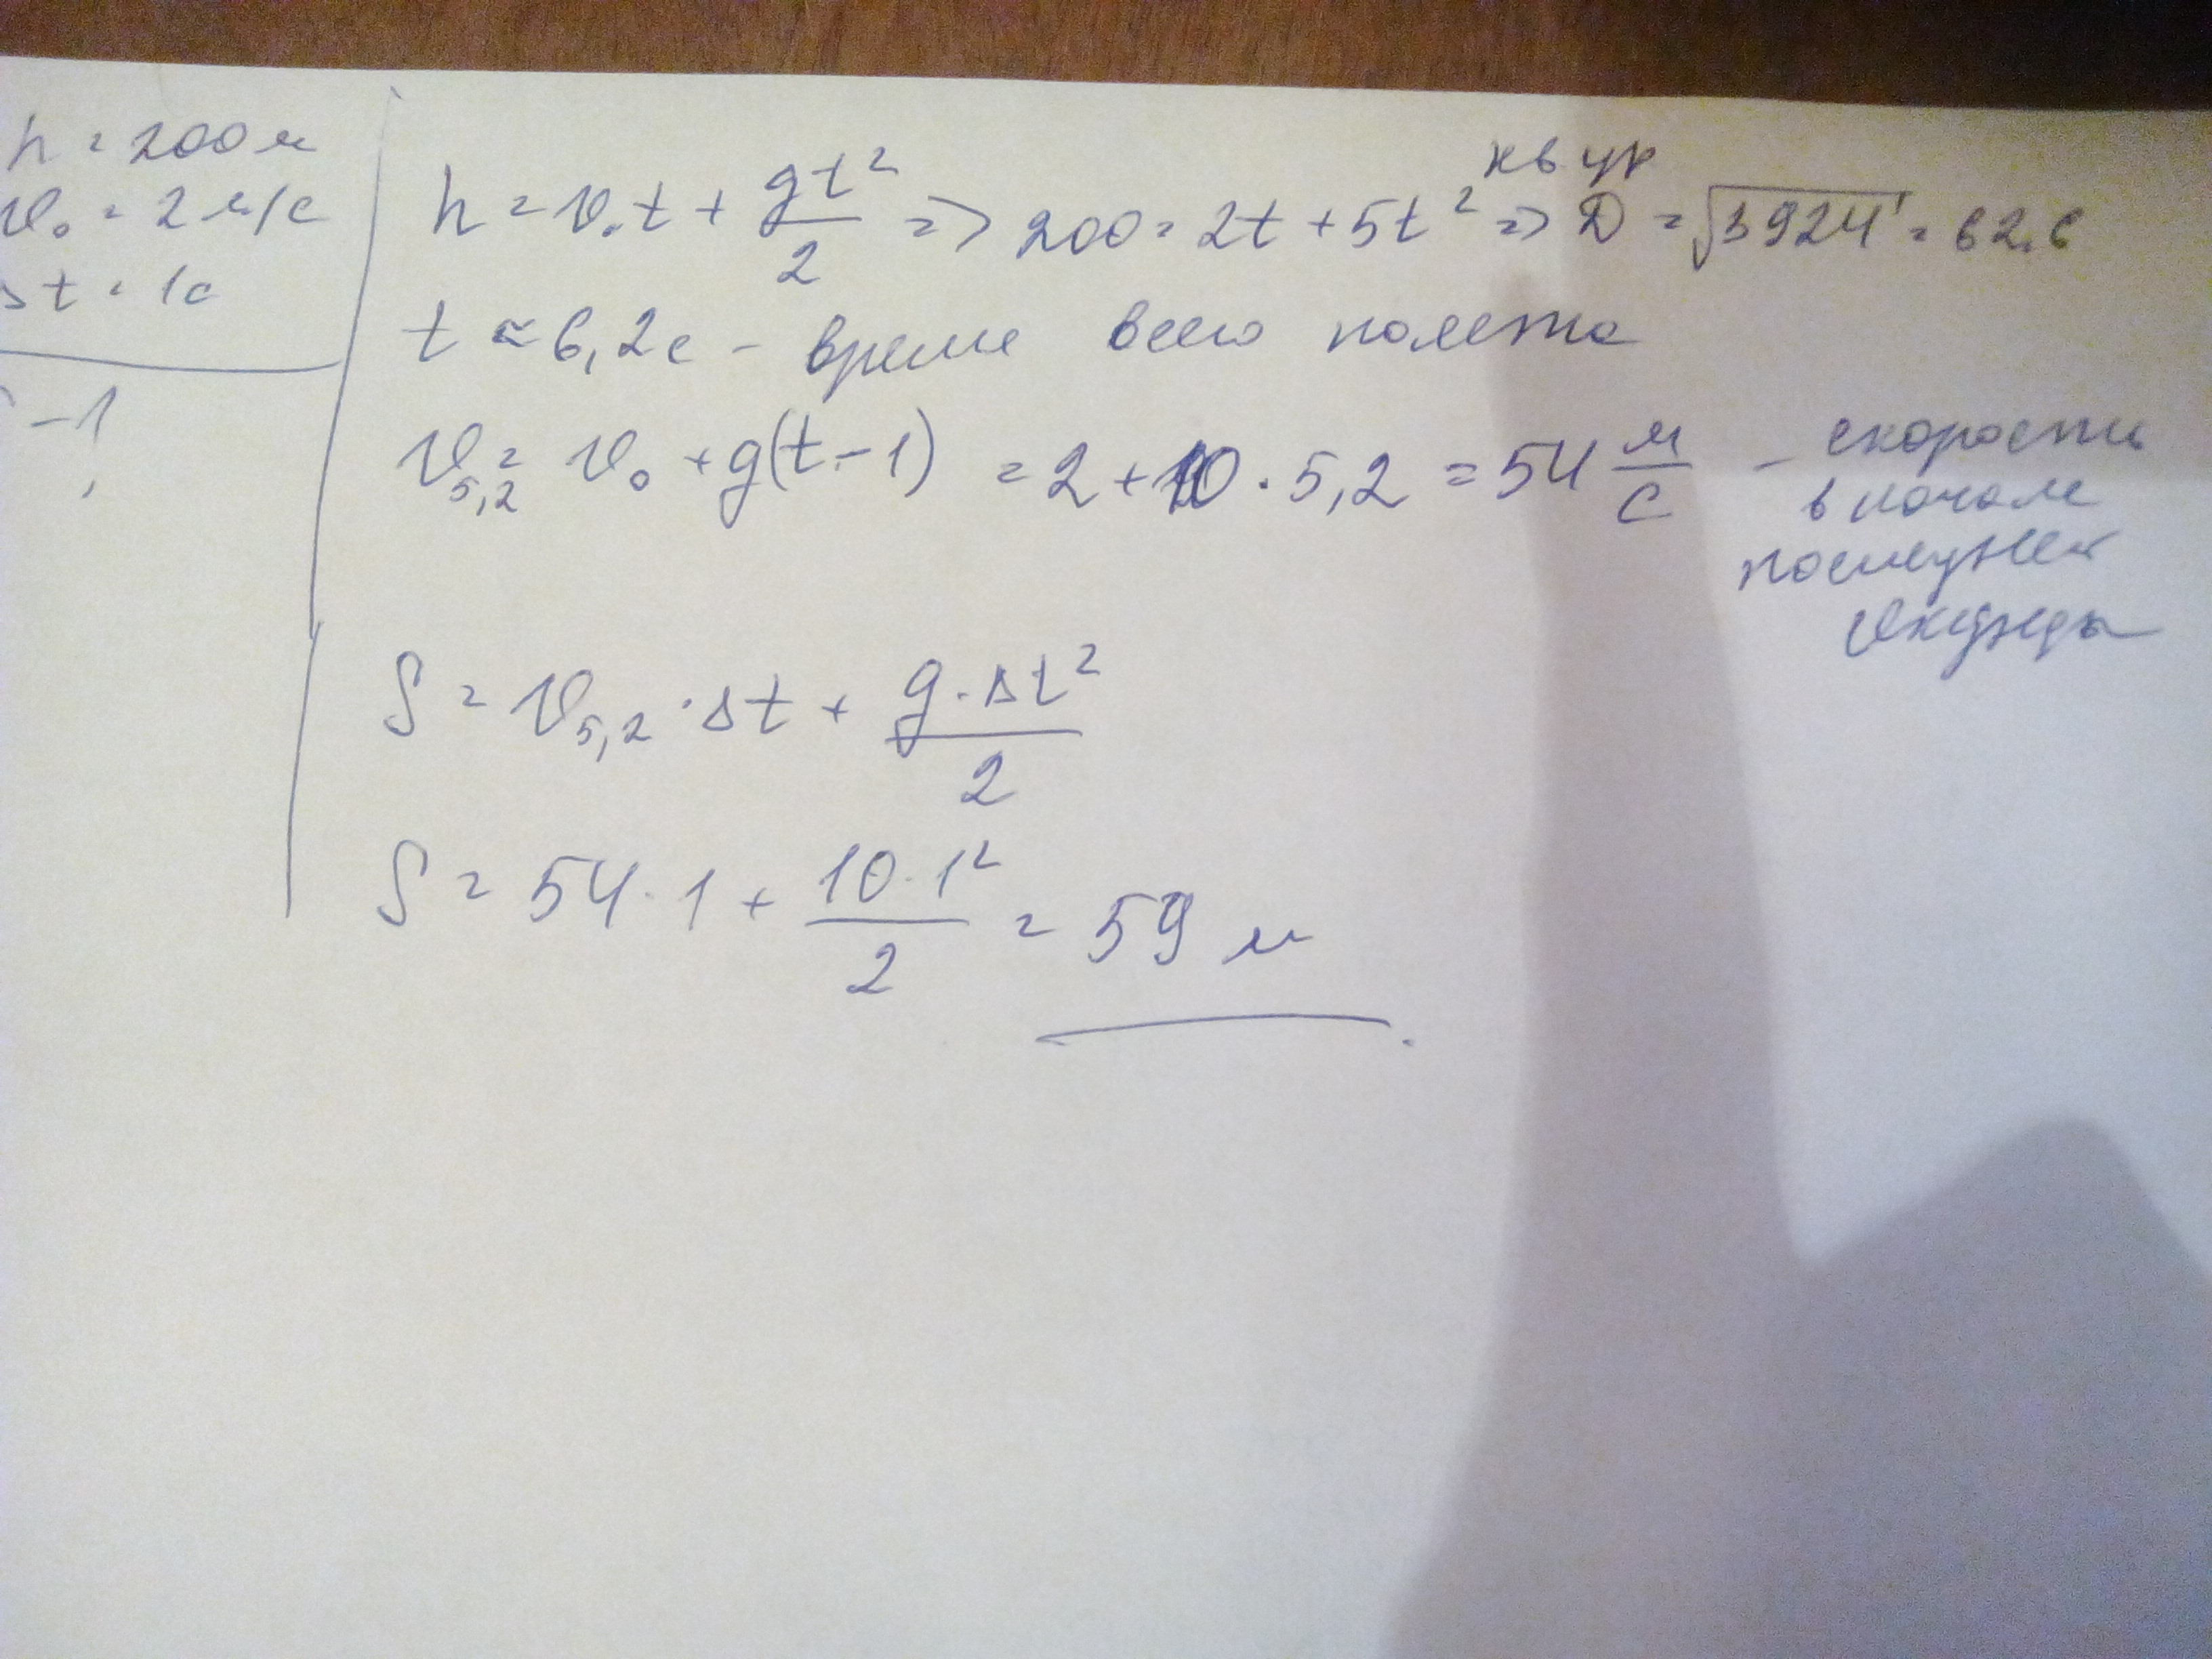 h = 200 м
v₀ = 2 м/с
Δt = 1с
S - ?
h = v₀t + gt²/2 => 200 = 2t + 5t² => D = √3924 = 62.6
кв ур
t ≈ 6,2с - время всего полета
v₅,₂ = v₀ + g(t-1) = 2 + 10 · 5,2 = 54 м/с - скорость
в начале
последней
секунды
S = v₅,₂ · Δt + g · Δt²/2
S = 54 · 1 + 10 · 1²/2 = 59 м